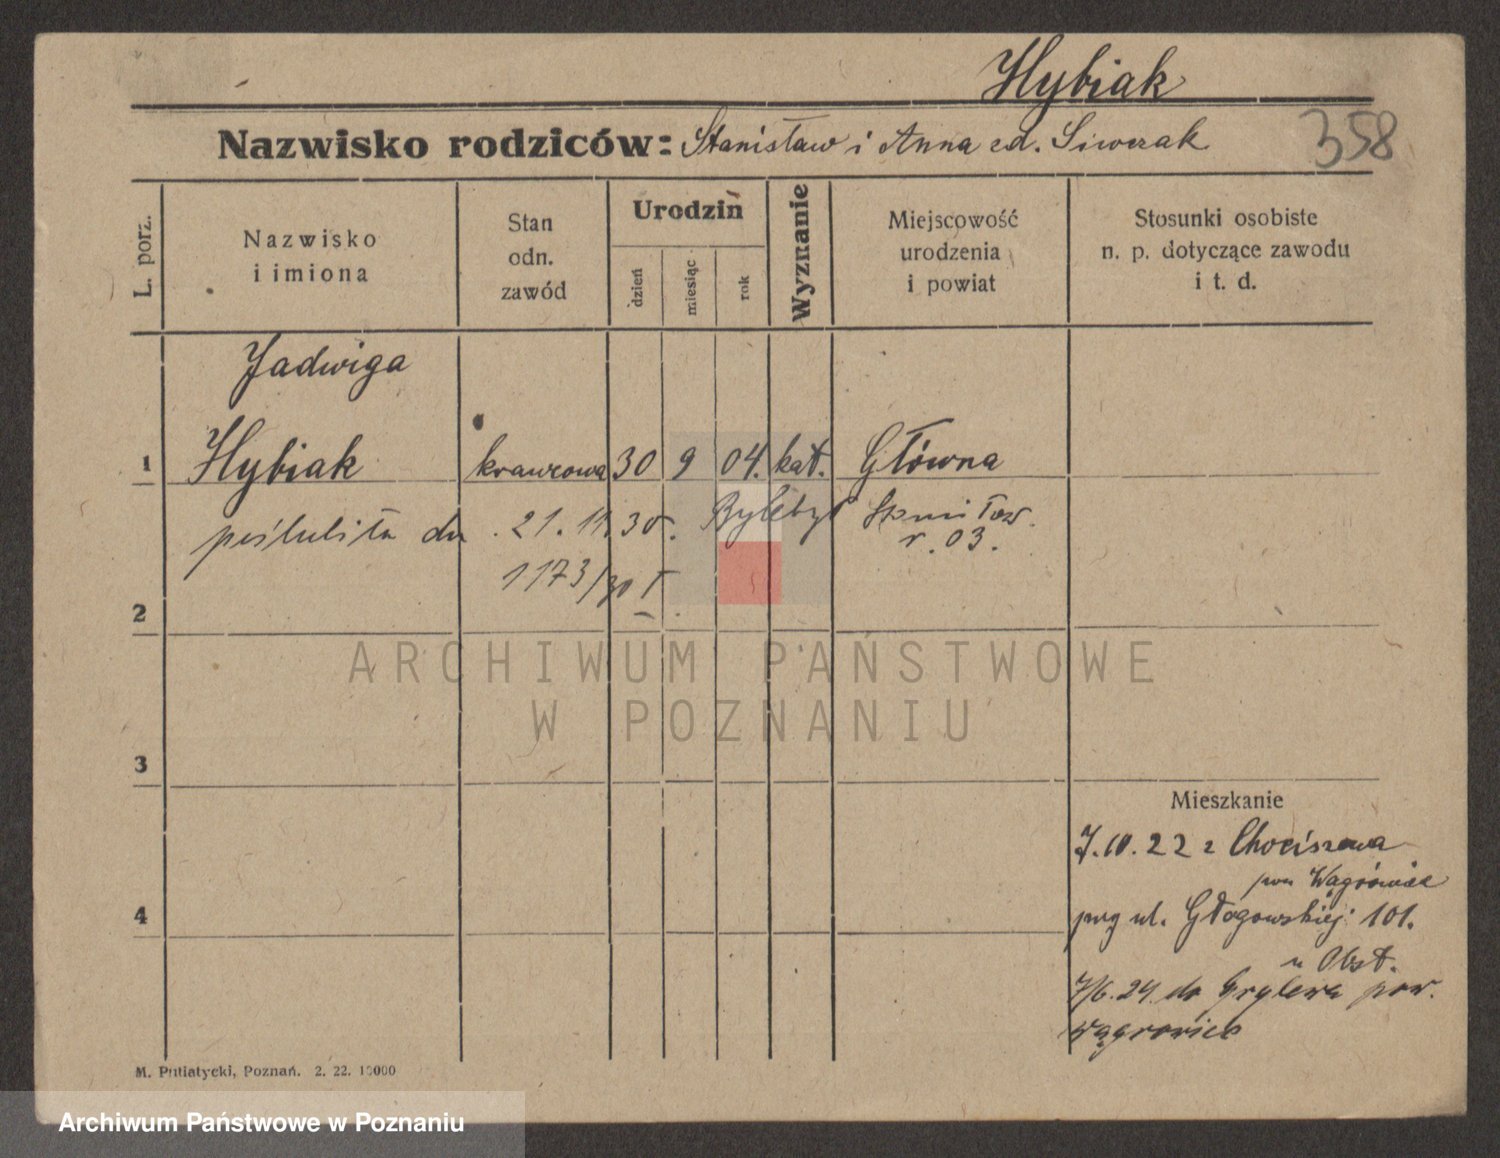 Hybiak
Nazwisko rodziców: Stanisław i Anna zd. Siwczak
358
L. porz.
Nazwisko
i imiona
Stan
odn.
zawód
Urodzin
dzień
miesiąc
rok
Wyznanie
Miejscowość
urodzenia
i powiat
Stosunki osobiste
n. p. dotyczące zawodu
i t. d.
Jadwiga
1 Hybiak krawcowa 30 9 04. kat. Główna
poślubiła dn. 21.11.30.
r. 03.
1173/30 I
2
ARCHIWUM PAŃSTWOWE
W POZNANIU
3
Mieszkanie
7.10.22 z Chociszewa
pow Wągrowiec
4
ul. Głogowskiej 101.
u Obst.
7/6.24 do Grylewa pow.
Wągrowiec
M. Putiatycki, Poznań. 2. 22. 10000
Archiwum Państwowe w Poznaniu